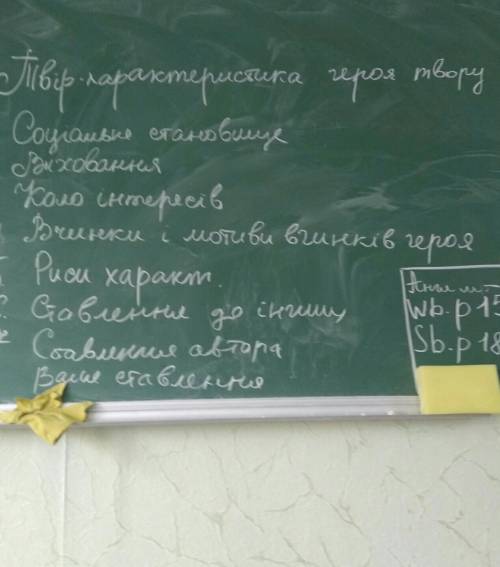 Твір-характеристика героя твору
Соціальне становище
Виховання
Коло інтересів
Вчинки і мотиви вчинків героя
Риси характ.
Ставлення до інших
Ставлення автора
Ваше ставлення
Wb. p 13
Sb. p 18